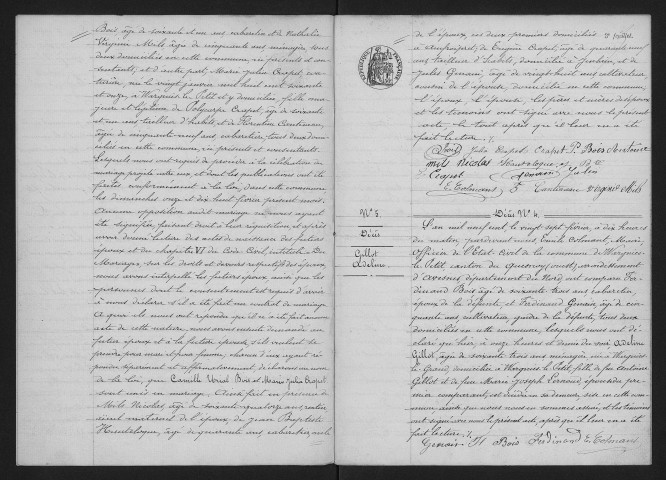 Bois, âgé de soixante et un ans cabaretier et de Nathalie
Virginie Mils âgée de cinquante ans ménagère, tous
deux domiciliés en cette commune, ici présents et con-
sentants; et d'autre part, Marie Julia Crapet, cou-
turière, née le vingt janvier mil huit cent soixante
et onze, à Wargnies le Petit et y domiciliée, fille ma-
jeure et légitime de Polycarpe Crapet, âgé de soixante
et un ans tailleur d'habits et de Florentine Cantineau,
âgée de cinquante-neuf ans, cabaretière, tous deux domi-
ciliés en cette commune, ici présents et consentants.
Lesquels nous ont requis de procéder à la célébration du
mariage projeté entre eux, et dont les publications ont été
faites conformément à la loi, dans cette commune,
les dimanches onze et dix huit février présent mois.
Aucune opposition audit mariage ne nous ayant
été signifiée, faisant droit à leur réquisition et après
avoir donné lecture des actes de naissance des futurs
époux et du chapitre VI du Code Civil, intitulé: Du
Mariage, sur les droits et devoirs respectifs des époux,
nous avons interpellé les futurs époux ainsi que les
personnes dont le consentement est requis d'avoir
à nous déclarer s'il a été fait un contrat de mariage
A quoi ils nous ont répondu qu'il n'a été fait aucun
acte de cette nature, nous avons ensuite demandé au
futur époux et à la future épouse, s'ils veulent se
prendre pour mari et pour femme, chacun d'eux ayant ré-
pondu séparément et affirmativement, déclarons au nom
de la loi, que Camille Uriel Bois et Marie Julia Crapet
sont unis en mariage. Ainsi fait en présence de
Mils Nicolas, âgé de soixante quatorze ans, rentier
oncle maternel de l'époux, de Jean Baptiste
Hautelocque, âgé de quarante ans cabaretier,
de l'époux, ces deux premiers domiciliés
à de Crapet, âgé de quarante neuf
ans tailleur d'habits, domicilié à Jenlain, et de
Jules Gennain, âgé de vingt huit ans cultivateur,
cousin de l'épouse, domicilié en cette commune,
l'époux, l'épouse, les pères et mères des époux
et les témoins ont signé avec nous le présent
acte, le tout après qu'il leur en a été
fait lecture.
Bois Julia Crapet Crapet P. Bois
mils Nicolas
P. Crapet Jules
E. Colmont F. Cantineau Virginie Mils
N° 5.
Décès
Gillot
Adeline
Décès N° 4.
L'an mil neuf cent, le vingt sept février, à dix heures
du matin, pardevant nous Emile Colmont, Maire,
Officier de l'Etat-Civil de la commune de Wargnies-
le-Petit, canton du Quesnoy (ouest) arrondissement
d'Avesnes, département du Nord, ont comparu Fer-
dinand Bois âgé de soixante trois ans cabaretier,
époux de la défunte, et Ferdinand Gennain, âgé de cin-
quante ans, cultivateur, gendre de la défunte, tous deux
domiciliés en cette commune, lesquels nous ont dé-
claré que hier, à onze heures et demie du soir Adeline
Gillot, âgée de soixante trois ans ménagère née à Wargnies
le Grand, domiciliée à Wargnies le Petit, fille de feu Antoine
Gillot et de feue Marie Joseph épouse du pre-
mier comparant, est décédée en sa demeure, sise en cette com-
mune, ainsi que nous nous en sommes assuré, et les témoins
ont signé avec nous le présent acte, après qu'il leur en a été
fait lecture.
Gennain Ft Bois Ferdinand E. Colmont